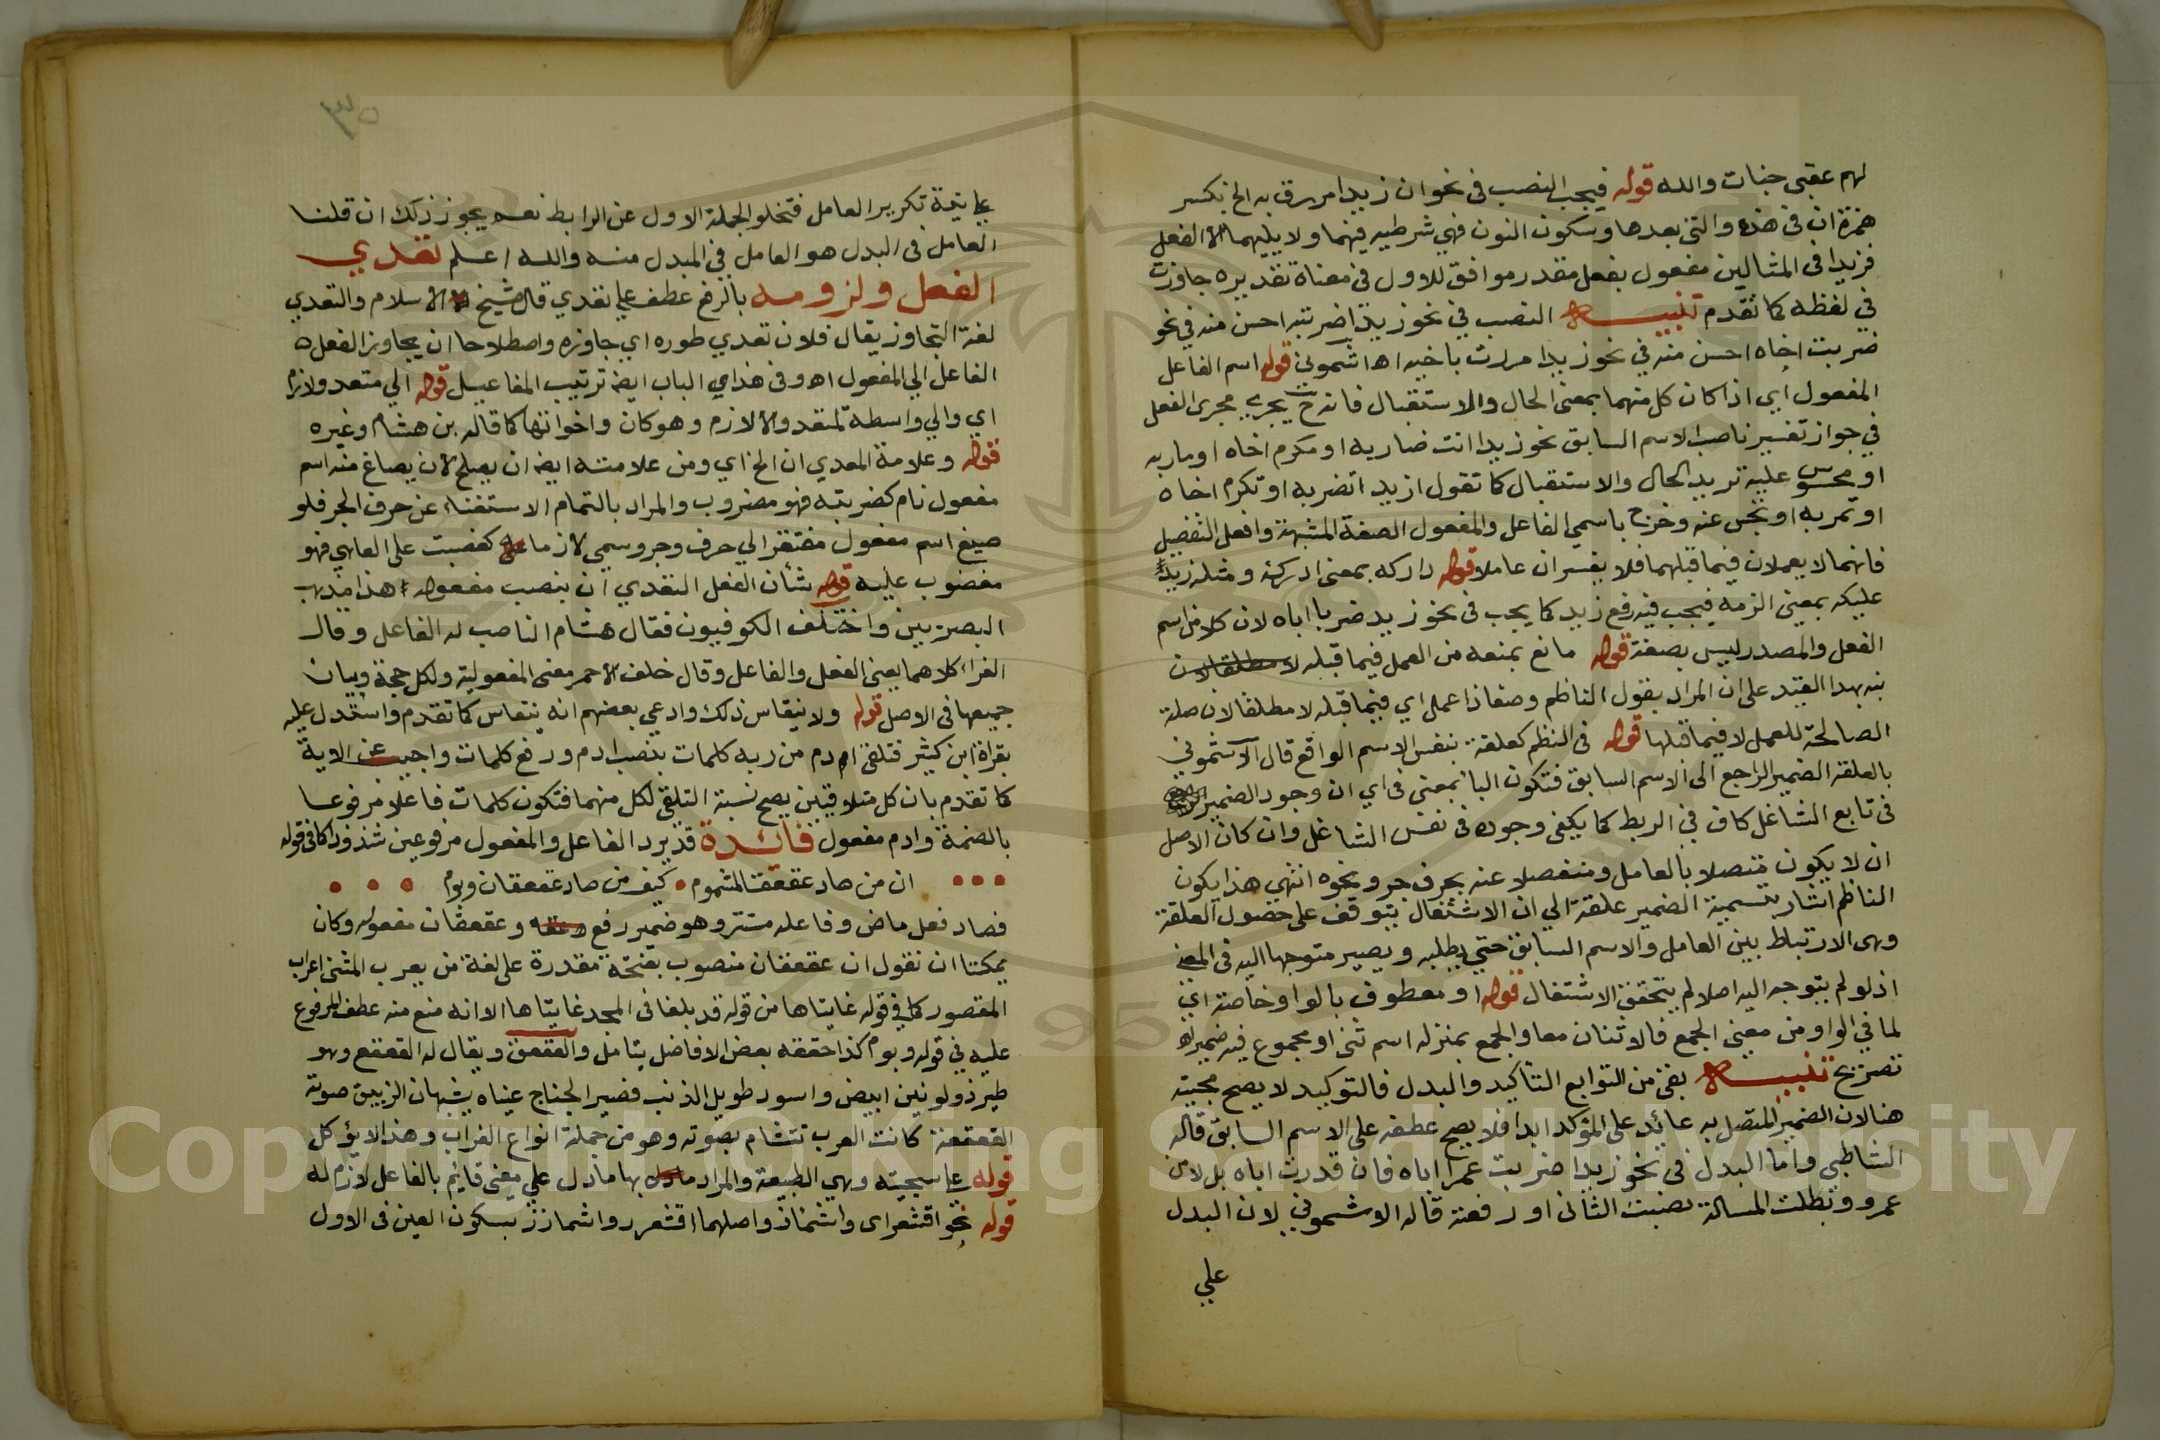 لهم عقبى جنات والله قوله فيجب النصب في نحو ان زيدا مررت به الخ بكسر
همزة ان في هذه والتى بعدها وسكون النون فهي شرطيه فيهما ولا يليهما الا الفعل
فزيدا في المثالين مفعول بفعل مقدر موافق للاول في معناه تقديره جاوزت
في لفظه كما تقدم تنبيه النصب في نحو زيدا ضربته احسن منه في نحو
ضربت اخاه احسن منه في نحو زيدا مررت باخيه اه اشموني قوله اسم الفاعل
المفعول اي اذا كان كل منهما بمعنى الحال والاستقبال فانه ح يجري مجرى الفعل
في جواز تفسير ناصب الاسم السابق نحو زيدا انت ضاربه او مكرم اخاه او مار به
او محبوس عليه تريد الحال والاستقبال كما تقول ازيدا تضربه او تكرم اخاه
او تمر به او تحبس عنه وخرج باسمي الفاعل والمفعول الصفة المشبهة وافعل التفضيل
فانهما لا يعملان فيما قبلهما فلا يفسران عاملا قوله دراكه بمعنى ادركه ومثله زيد
عليكه بمعنى الزمه فيجب فيه رفع زيد كما يجب في نحو زيد ضربا اباه لان كلا من اسم
الفعل والمصدر ليس بصفة قوله مانع يمنعه من العمل فيما قبله لا مطلقا لان
نبه بهذا القيد على ان المراد بقول الناظم وصفا ذا عمل اي فيما قبله لا مطلقا لان صلة
الصالحة للعمل لا فيما قبلها قوله في النظم كعلقة بنفس الاسم الواقع قال الاشموني
بالعلقة الضمير الراجع الى الاسم السابق فتكون البا بمعنى في اي ان وجود الضمير
في تابع الشاغل كاف في الربط كما يكفي وجوده في نفس الشاغل وان كان الاصل
ان لا يكون متصلا بالعامل ومنفصلا عنه بحرف جر ونحوه انتهى هذا يكون
الناظم اشار بتسمية الضمير علقة الى ان الاشتغال يتوقف على حصول العلقة
وهى الارتباط بين العامل والاسم السابق حتى يطلبه ويصير متوجها اليه في المعنى
اذ لو لم يتوجه اليه اصلا لم يتحقق الاشتغال قوله او معطوف بالواو خاصة اي
لما في الواو من معنى الجمع فالاثنان معا والجمع بمنزله اسم ثنى او مجموع فيه ضميره
تصريح تنبيه بقى من التوابع التاكيد والبدل فالتوكيد لا يصح مجيئه
هنا لان الضمير المتصل به عائد على المؤكد ابدا فلا يصح عطفه على الاسم السابق قاله
الشاطبي واما البدل في نحو زيدا ضربت عمرا اباه فان قدرت اباه بدلا من
عمرو وبطلت المسالة نصبت الثاني او رفعته قاله الاشموني لان البدل
علي
علي نية تكرير العامل فتخلو الجملة الاول عن الرابط نعم يجوز ذلك ان قلنا
العامل في البدل هو العامل في المبدل منه والله اعلم تعدي
الفعل ولزومه بالرفع عطف علي تعدي قال شيخ الاسلام والتعدي
لغة التجاوز يقال فلان تعدي طوره اي جاوزه واصطلاحا ان يجاوز الفعل
الفاعل الي المفعول اه وفي هذا الباب ايضا ترتيب المفاعيل قوله الي متعد ولازم
اي والي واسطة لا متعد ولا لازم وهو كان واخواتها كما قاله بن هشام وغيره
قوله وعلامة المعدي ان الخ اي ومن علامته ايضا ان يصلح لان يصاغ منه اسم
مفعول تام كضربته فهو مضروب والمراد بالتمام الاستغناء عن حرف الجر فلو
صيغ اسم مفعول مفتقر الي حرف وجر وسمي لازما كغضبت على العاصي فهو
مغضوب عليه قوله شأن الفعل التعدي ان ينصب مفعوله هذا مذهب
البصريين واختلف الكوفيون فقال هشام الناصب له الفاعل وقال
الفرا كلاهما يعنى الفعل والفاعل وقال خلف الاحمر معنى المفعولية ولكل حجة وبيان
جميعها في الاصل قوله ولا ينقاس ذلك وادعي بعضهم انه ينقاس كما تقدم واستدل عليه
بقراة ابن كثير فتلقى ادم من ربه كلمات بنصب ادم ورفع كلمات واجيب عن الاية
كما تقدم بان كل متلاقيين يصح نسبة التلقي لكل منهما فتكون كلمات فاعلا مرفوعا
بالضمة وادم مفعول فائدة قد يرد الفاعل والمفعول مرفوعين شذوذا كما في قوله
ان من صاد عقعقا لمشوم كيف من صاد عقعقان وبوم
فصاد فعل ماض وفاعله مستتر وهو ضمير رفع وعقعقان مفعوله وكان
يمكننا ان نقول ان عقعقان منصوب بفتحة مقدرة على لغة من يعرب المثنى اعراب
المقصور كما في قوله غايتاها من قوله قد بلغا في المجد غايتاها الا انه منع منه عطف المرفوع
عليه في قوله وبوم كذا حققه بعض الافاضل يتامل والعقعق ويقال له القعقع وهو
طير ذو لونين ابيض واسود طويل الذنب قصير الجناح عيناه يشبهان الزيبق صوته
القعقعة كانت العرب تتشام بصوته وهو من جملة انواع الغراب وهذا لا يؤكل
قوله على سجيته وهي الطبيعة والمراد بها ما دل علي معنى قايم بالفاعل لازم له
قوله نحو اقشعر اى واشماز واصلهما اقشعرر واشمازز بسكون العين في الاول